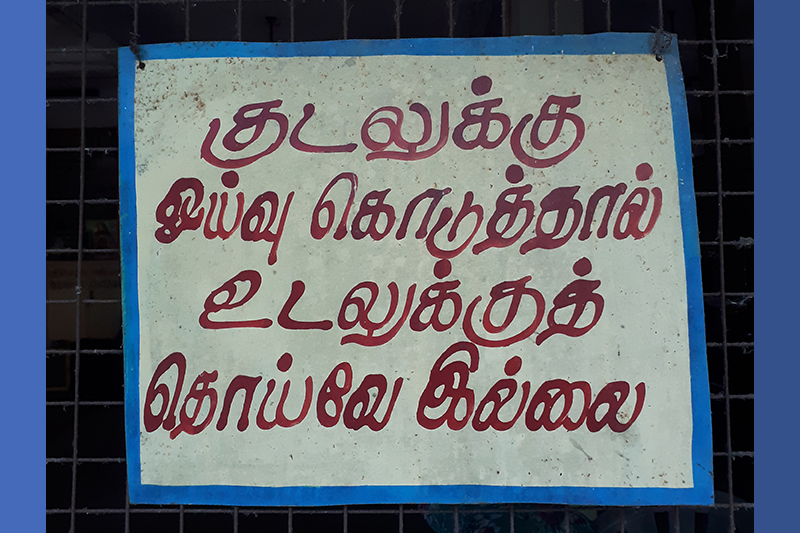 குடலுக்கு
ஓய்வு கொடுத்தால்
உடலுக்குத்
தொய்வே இல்லை